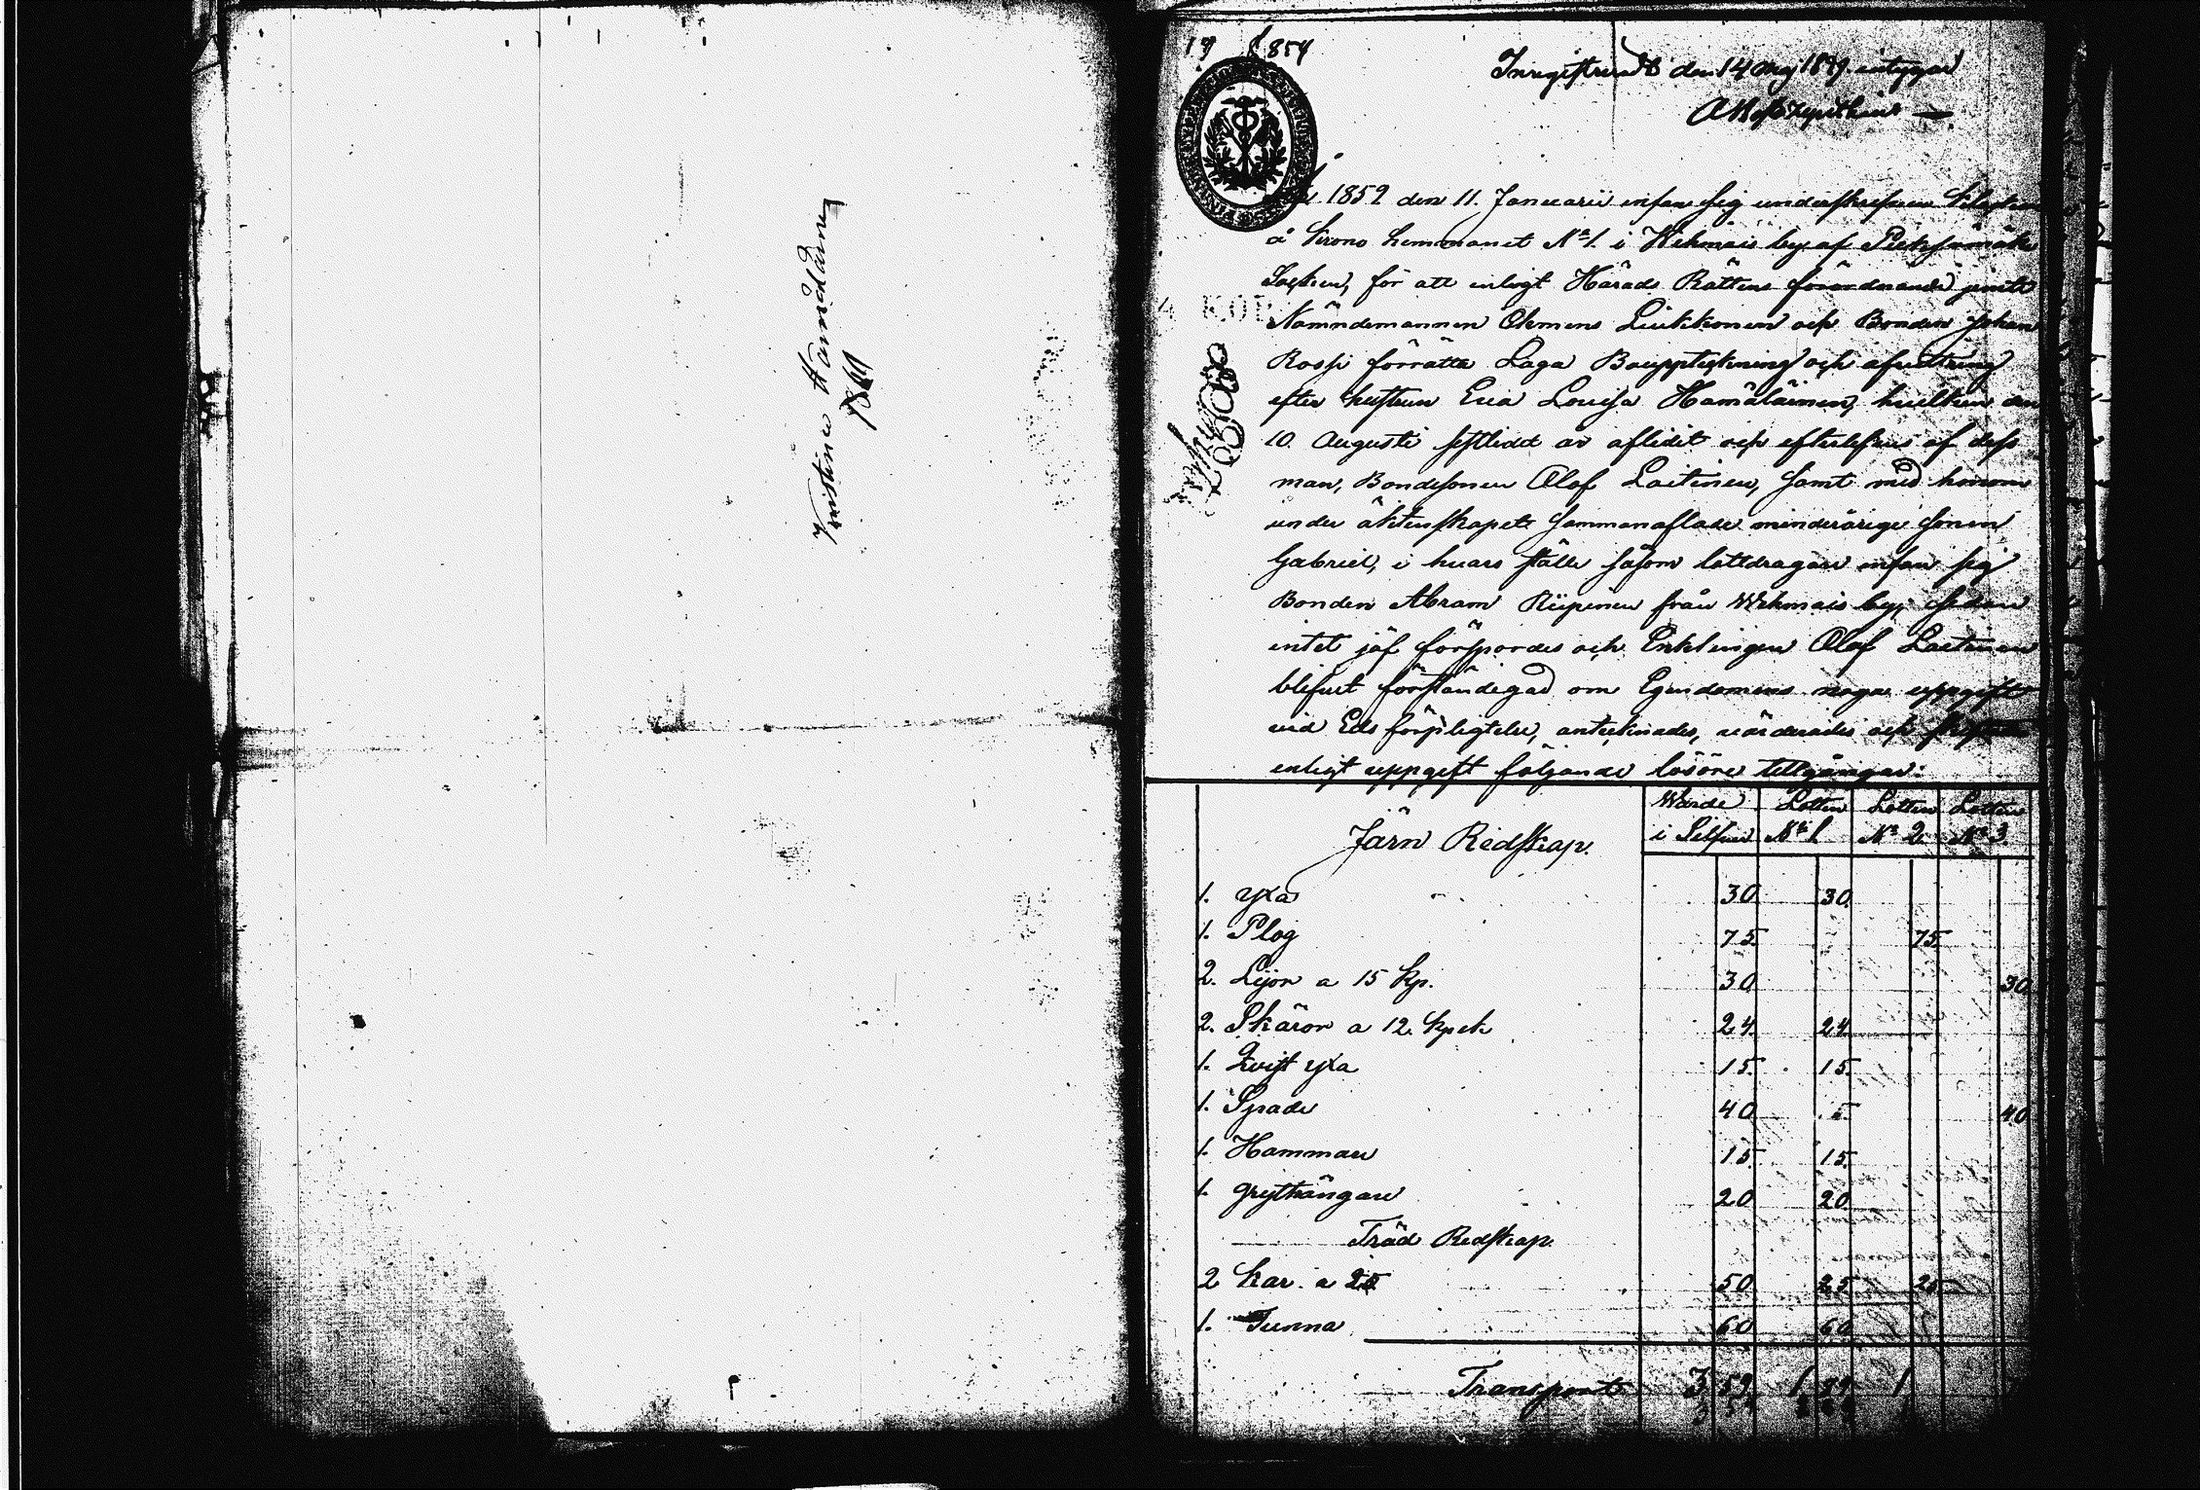 Kristina Hämäläinen
1860
1854
Inregistreradt den 14 intygar
År 1859 den 11. Januarii infann sig underskrifven
å Krono hemmanet N:o 1. i Wehmais by af Pieksämäki
Socken, för att enligt Härads Rättens förordnande jemte
4 KOP
Nämndemannen Clemens Liukkonen och Bonden Johan
Rossi förrätta Laga Bouppteckning och afvittring
efter hustrun Eva Lovisa Hämäläinen, hvilken den
10. Augusti sistledet år aflidit och efterlefves af dess
man, Bondesonen Olof Laitinen, samt med honom
under äktenskapet sammanaflade minderårige sonen
Gabriel, i hvars ställe såsom lottdragare infann sig
Bonden Abram Riipinen från Wehmais by; sedan
intet jäf förspordes och Enklingen Olof Laitinen
blifvit förständigad om Egendomens noga uppgift
vid Eds förpligtelse, antecknades, värderades och
enligt uppgift följande lösöre tillgångar:
Järn Redskap. Wärde i Silfver Lotten N:o 1 Lotten N:o 2 Lotten N:o 3
1. Yxa 30 30
1. Plog 75. 75.
2. Lijor a 15 Kp. 30 30
2. Skäror a 12. Kpek 24. 24
1. Qvist yxa 15. 15.
1. Spade 40 40
1. Hammare 15. 15.
1. Grythängare 20 20
Träd Redskap.
2 Kar. a 25 50 25 25
1. Tunna 60 60
Transport 3 59. 1 89. 1